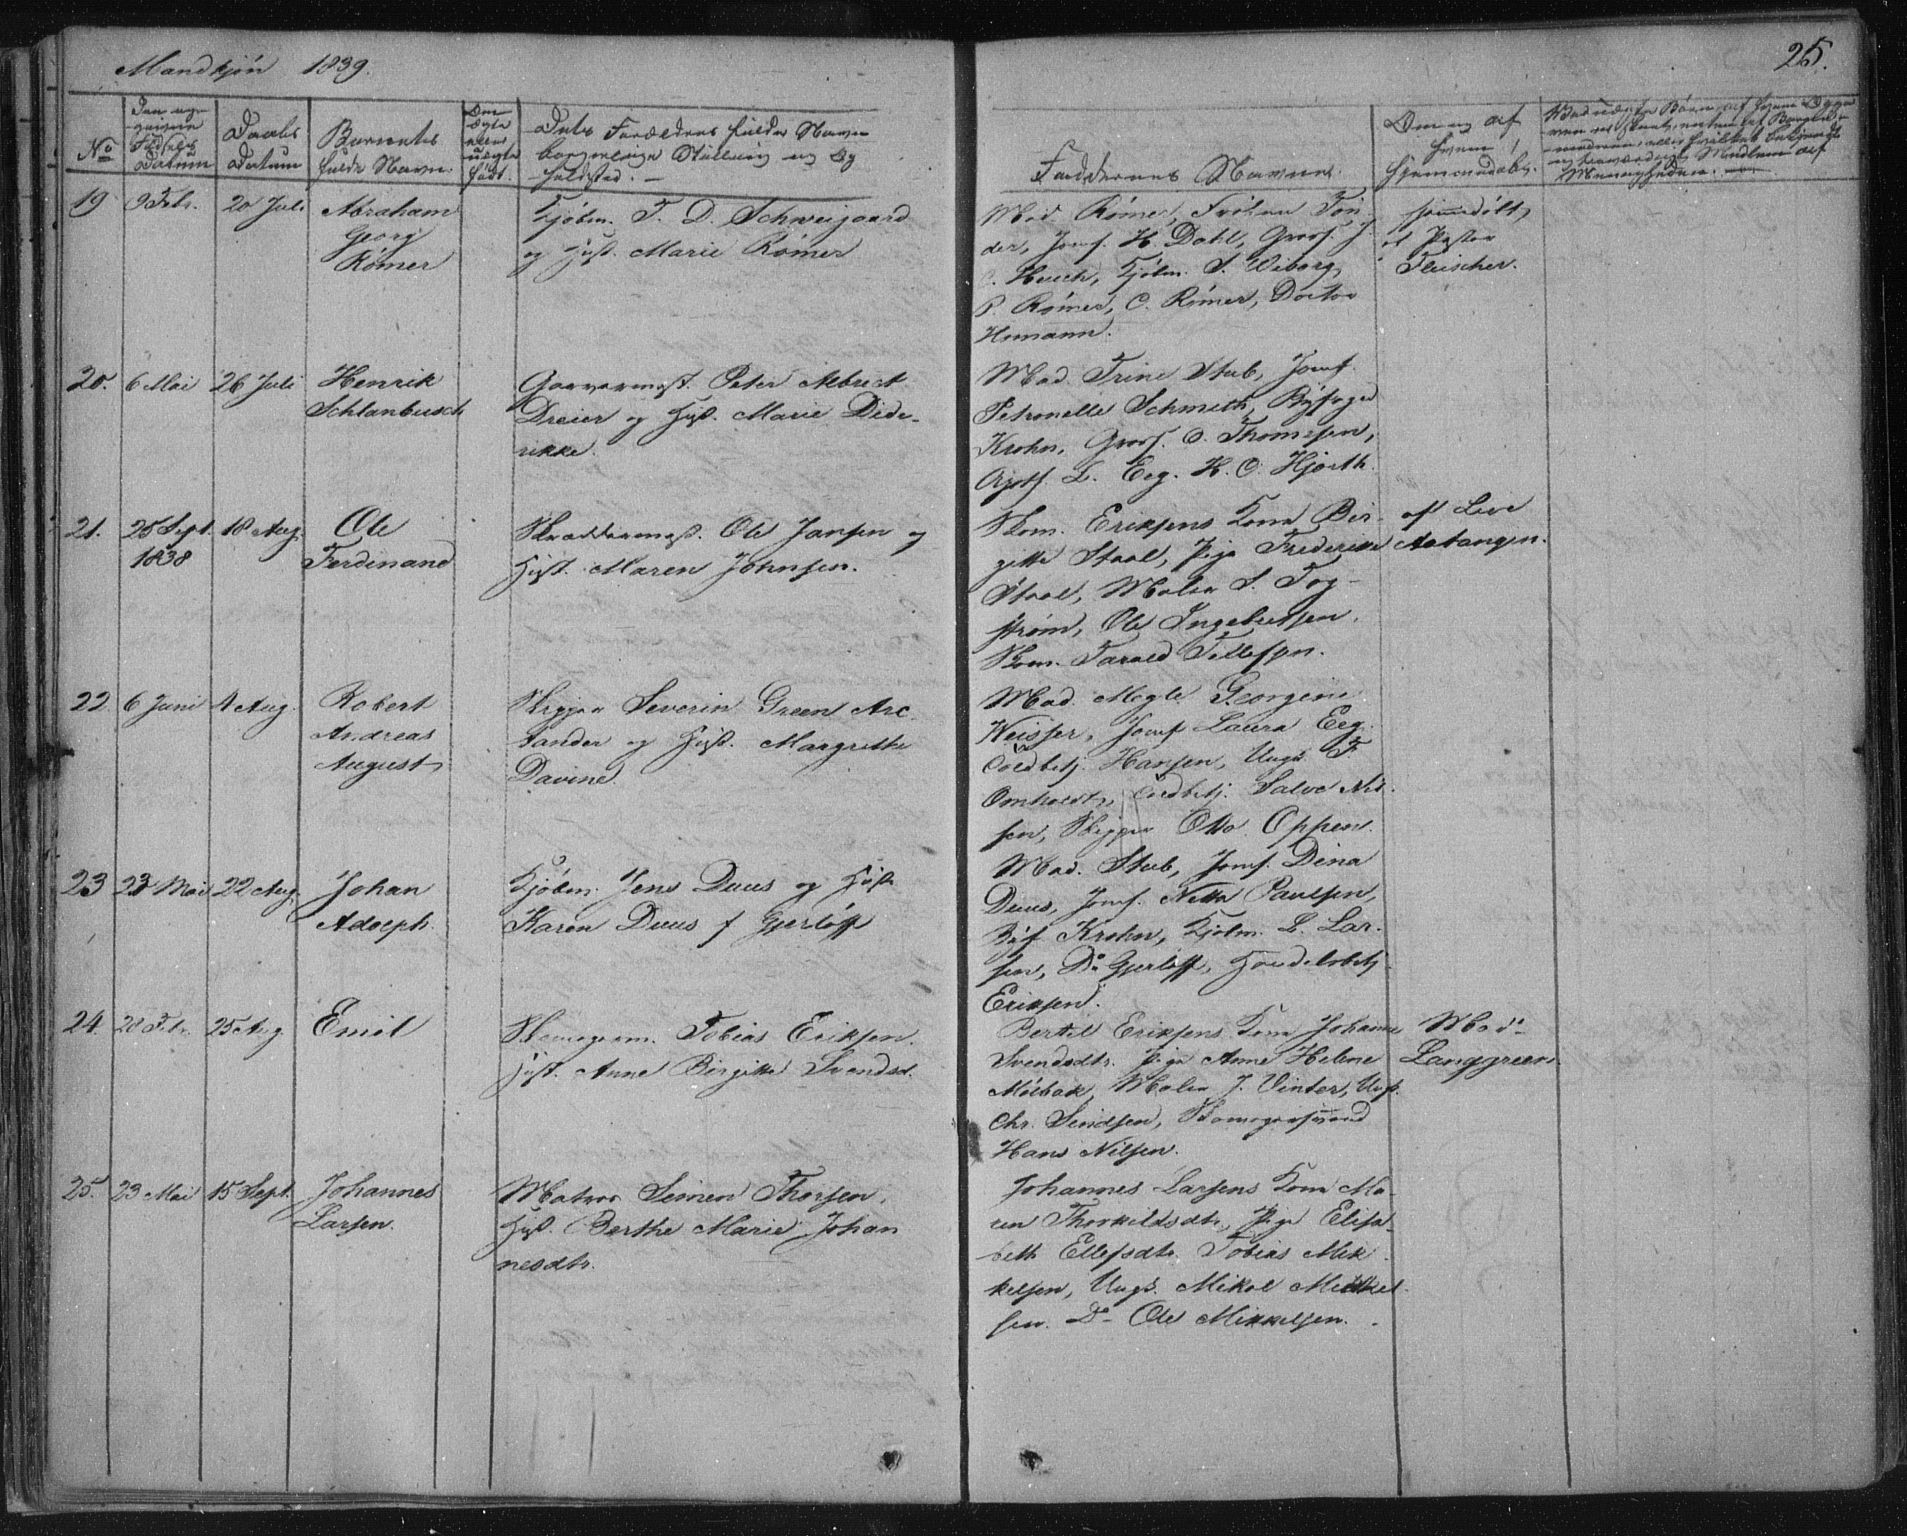 Mandkjön 1839.
25.
No
Den angivne Fødsels Datum
Daabs Datum
Barnets fulde Navn.
Om ægte eller uægte født.
Dets Forældres fulde Navn borgerlige Stilling og
Faddernes Navne.
Om og af hvem hjemmedøbt.
19 9 Febr. 20 Juli Abraham Georg Rømer
Kjøbm. T. D. Schweigaard
og Hust. Marie Rømer
Mad. Rømer, Frøken Tøn-
der, Jomf. H. Dahl, Gross. J.
C. Heuch, Kjøbm. S. Wiborg,
P. Rømer, C. Rømer, Doctor
Homann.
hjemdöbt
af Pastor
Fleischer.
20. 6 Mai 26 Juli Henrik Schlanbusch
Garvermest. Peter Albrect
Dreier og Hust. Marie Dide-
rikke.
Mad. Trine Stub, Jomf.
Petronelle Schmith, Byfoged
Krohn, Gross. O. Thomesen,
L. Eeg. H. O. Hjorth.
21. 25 Sept. 1838 18 Aug. Ole Ferdinand
Skræddermest. Ole Jansen og
Hust. Maren Johnsen.
Skom. Eriksens Kone Bir-
gitte Staal, Pige Frederikke
Staal, Maler S. Fog-
strøm, Ole Ingebretsen,
Skom. Tarald Tellefsen.
af Live
Aatangen.
22 6 Juni 4 Aug. Robert Andreas August
Skipper Severin Green Arc-
tander og Hust. Margrethe
Davine.
Mad. Megle Georgine
Weisser, Jomf Laura Eeg.
Toldbetj. Hansen, Ungk. F.
Omholdt, Toldbetj. Salve Nil-
sen, Skipper Otto Oppen.
23 23 Mai 22 Aug. Johan Adolph.
Kjöbm. Jens Duus og Hust
Karen Duus f Gjerløff
Mad. Stub, Jomf. Dina
Duus, Jomf. Netta Paulsen,
Byf Krohn, Kjöbm. L. Lar-
sen, Do Gjerløff, Handelsbetj
Eriksen.
24. 28 Febr. 25 Aug. Emil
Skomagerm. Tobias Eriksen.
Hust. Anne Birgitte Svendsd.
Bertel Eriksens Kone Johanne
Svendsdtr. Pige Anne Helene
Mølbak, Maler J. Vinter, Ungk.
Chr. Sendsen, Skomagersvend
Hans Nilsen.
Mad.
Langgreen.
25. 23 Mai 15 Sept. Johannes Larsen.
Matros Semen Thorsen,
Hust. Berthe Marie Johan
nesdtr.
Johannes Larsens Kone Ma-
ren Thorkildsdtr. Pige Elisa-
beth Ellefsdtr. Tobias Mik
kelsen, Ungk. Mikal Mikkel-
sen. Do Ole Mikkelsen.